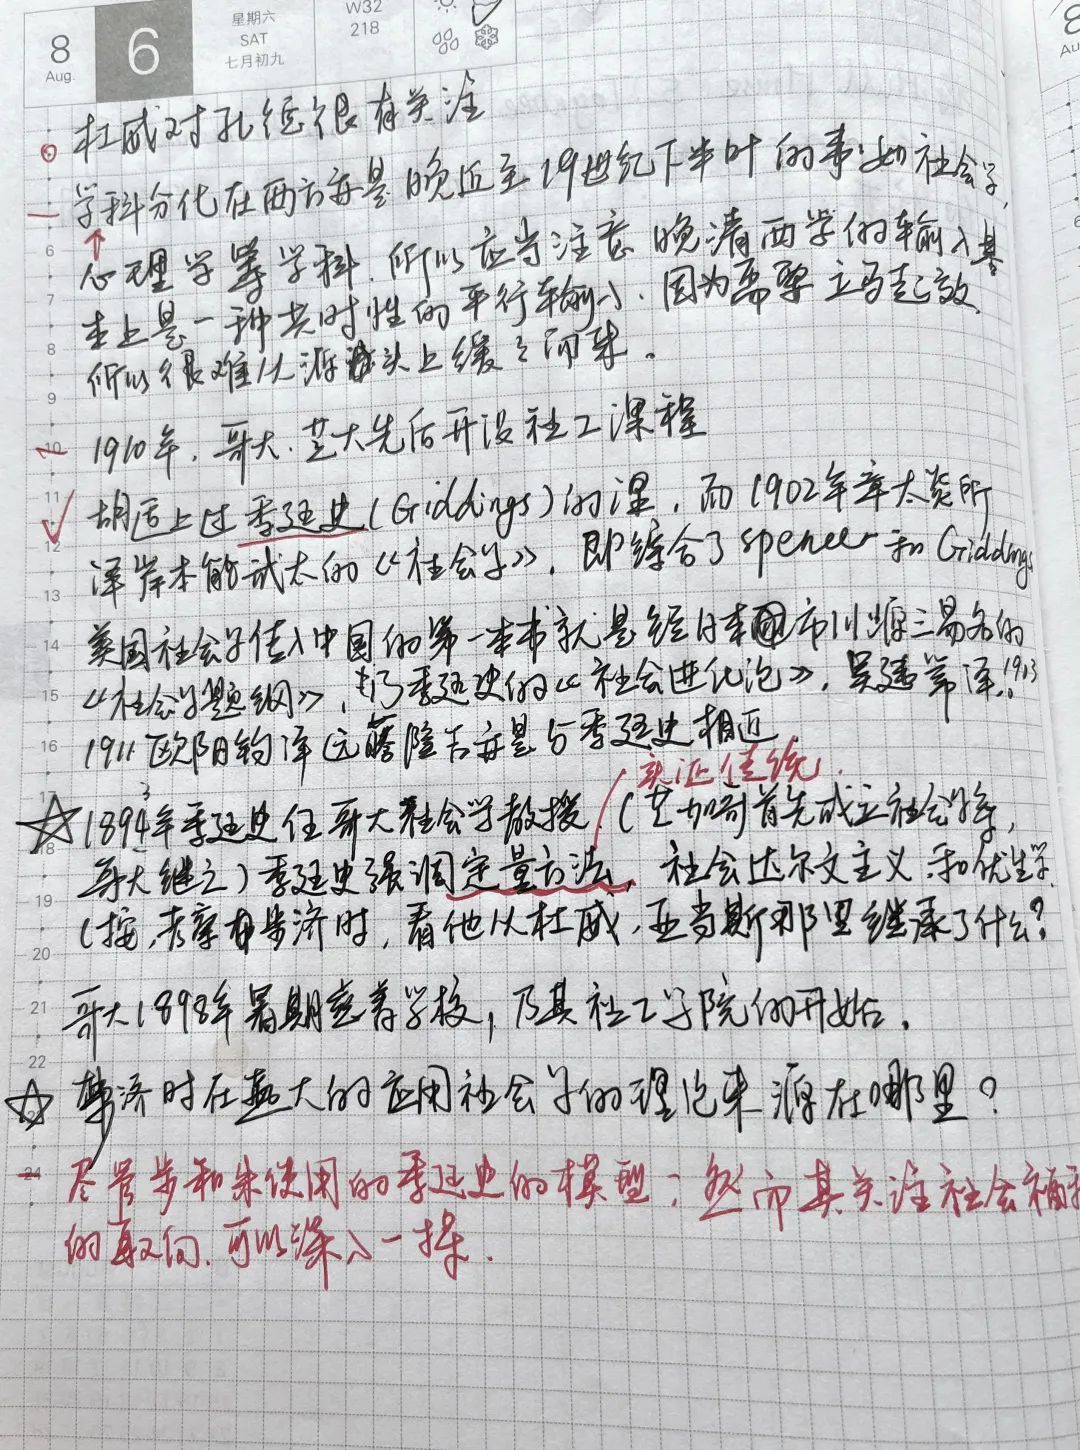 8
Aug.
6
星期六
SAT
七月初九
W32
218
8
Au
杜威对孔德很有关注
学科分化在西方亦是晚近至19世纪下半叶的事,如社会学,
心理学等学科.所以应当注意晚清西学的输入基
本上是一种共时性的平行输入.因为需要立马起效
所以很难从源头上缓缓而来.
1910年,哥大.芝大先后开设社工课程
胡适上过季廷史(Giddings)的课,而1902年章太炎所
译岸本能武太的《社会学》,即综合了spencer和Giddings
美国社会学传入中国的第一本书就是经日本市川源三易名的
《社会学题纲》,乃季廷史的《社会进化论》,吴建常译.1903
1911欧阳钧译远藤隆吉亦是与季廷史相近.
实证传统.
1894年季廷史任哥大社会学教授.(芝加哥首先成立社会学系,
哥大继之)季廷史强调定量方法,社会达尔文主义和优生学.
(按,考察步济时,看他从杜威,亚当斯那里继承了什么?
哥大1898年暑期慈善学校,乃其社工学院的开始.
步济时在燕大的应用社会学的理论来源在哪里?
尽管步和朱使用的季廷史的模型;然而其关注社会福利
的取向,可以深入一探.
6
7
8
9
10
11
12
13
14
15
16
17
18
19
20
21
22
24